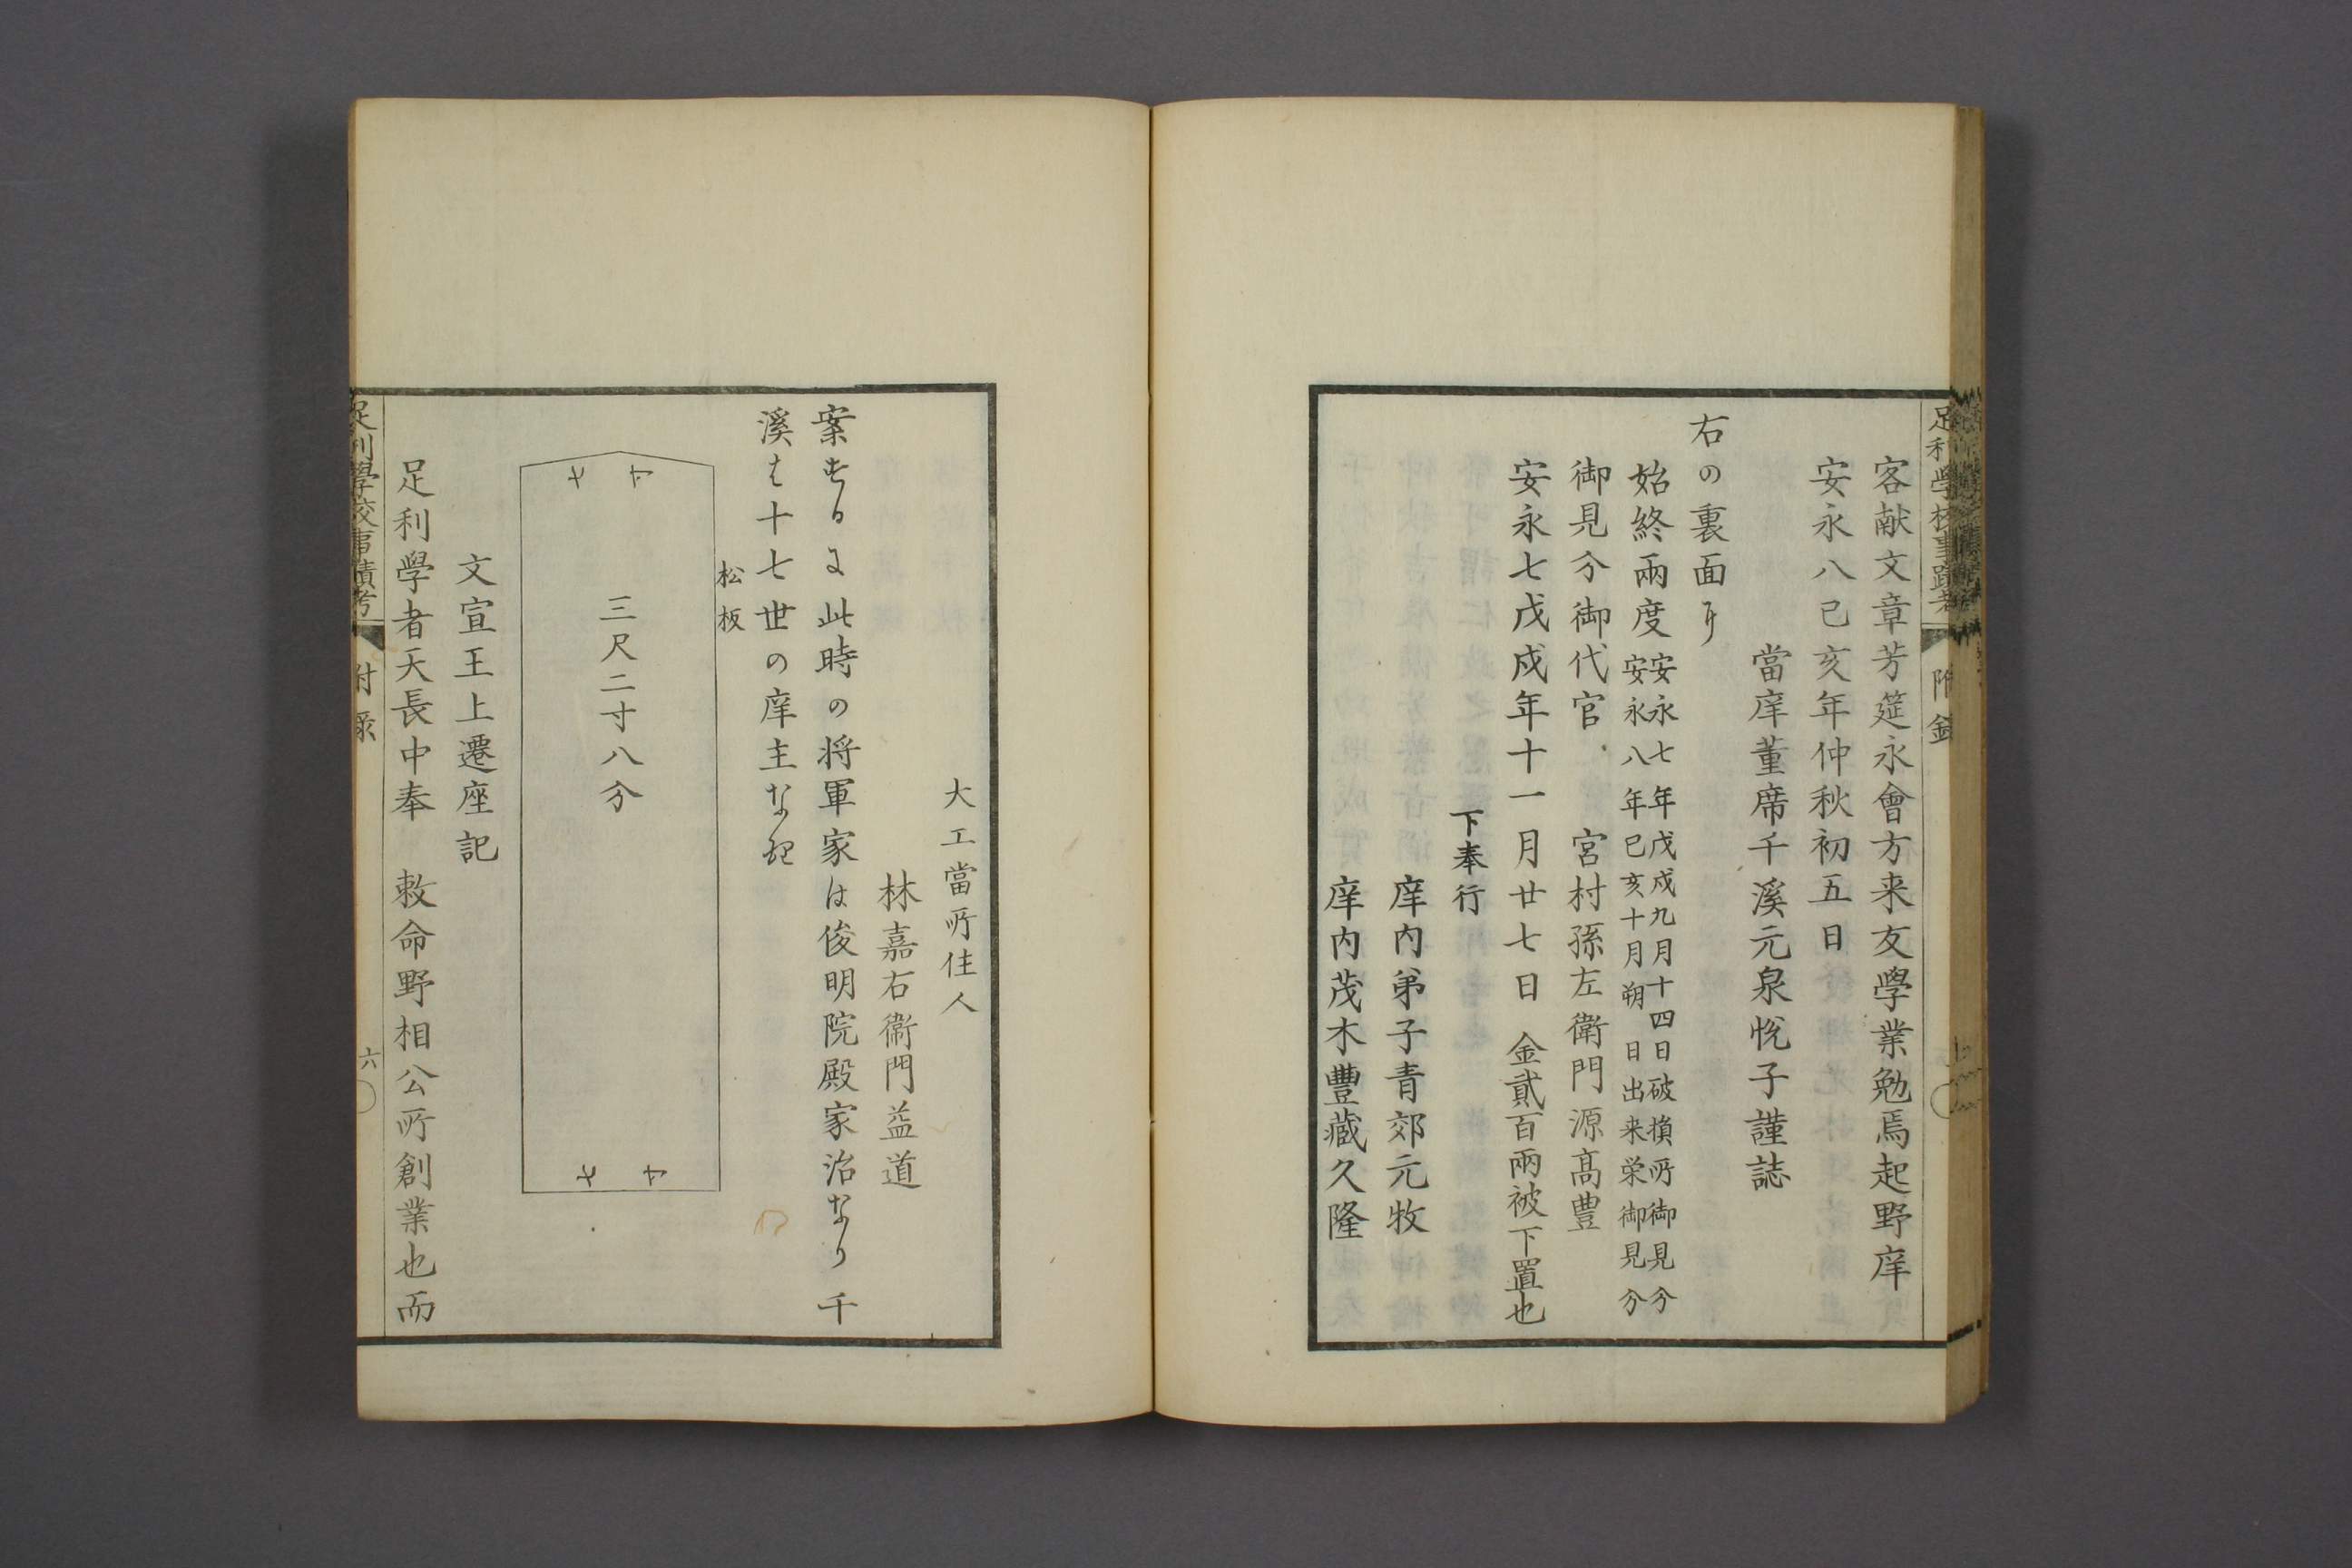 足利學校事蹟考
附録
客献文章芳筵永會方来友學業勉焉起野庠
安永八己亥年仲秋初五日
當庠董席千溪元泉悦子謹誌
右の裏面に
始終兩度
安永七年戊戌九月十四日破損所御見分
安永八年己亥十月朔日出来栄御見分
御見分御代官 宮村孫左衛門源髙豊
安永七戊戌年十一月廿七日 金貳百兩被下置也
下奉行
庠内弟子青郊元牧
庠内茂木豊藏久隆
大工當所住人
林嘉右衛門益道
案するに此時の将軍家は俊明院殿家治なり千
溪は十七世の庠主なり
松板
三尺二寸八分
文宣王上遷座記
足利學者天長中奉 敕命野相公所創業也而
足利學校事蹟考
附録
六